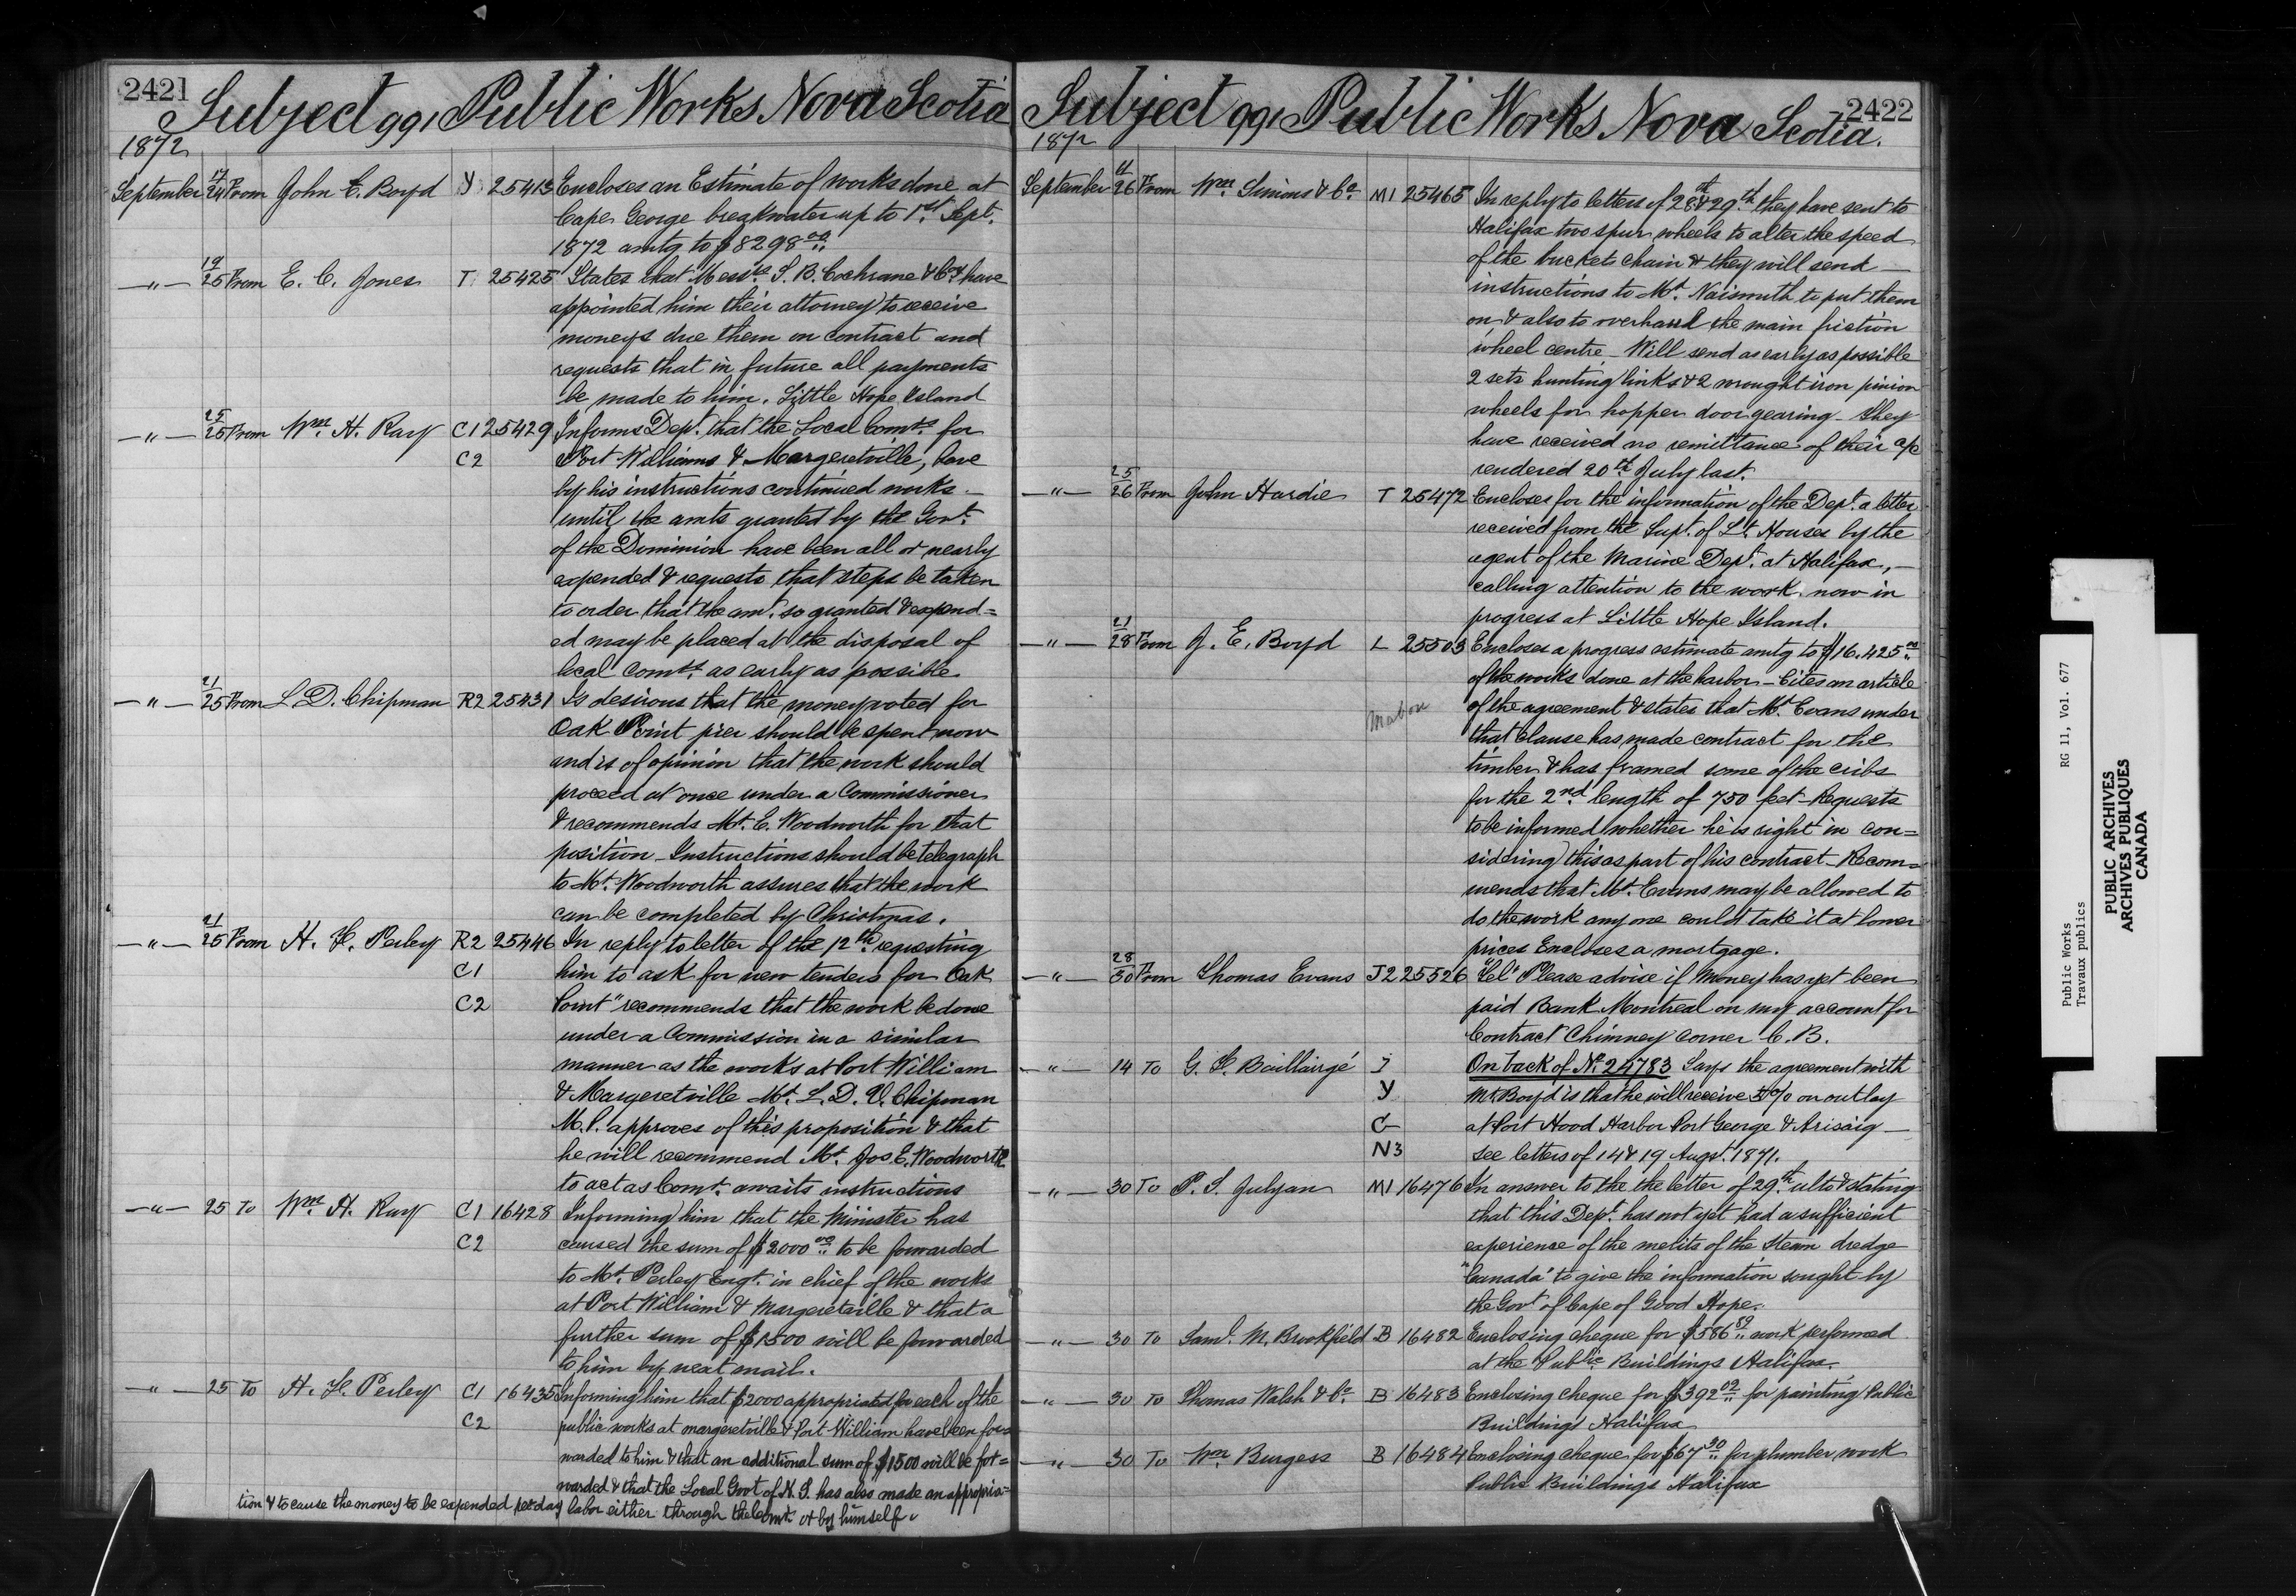 2421
Subject 991 Public Works Nova Scotia
1872
September 17/24 From John E. Boyd Y 25413 Encloses an Estimate of works done at
Cape George breakwater up to 1st Sept.
1872 amtg to $8298.00
—"— 19/25 From E. C. Jones T 25425 States that Messrs S. B. Cochrane & Coy have
appointed him their attorney to receive
moneys due them on contract and
requests that in future all payments
be made to him. Little Hope Island
—"— 25/25 From Wm. H. Ray C1 25429 Informs Dept. that the Local Comrs. for
C2 Port Williams & Margeretville, have
by his instructions continued works —
until the amts granted by the Govt.
of the Dominion have been all or nearly
expended & requests that steps be taken
to order that the amt. so granted & expend=
ed may be placed at the disposal of
local Comrs. as early as possible
—"— 21/25 From L. D. Chipman R2 25431 Is desirous that the money voted for
Oak Point pier should be spent now
and is of opinion that the work should
proceed at once under a Commissioner
& recommends Mr. E. Woodworth for that
position — Instructions should be telegraph
to Mr. Woodworth assures that the work
can be completed by Christmas.
—"— 21/25 From H. F. Perley R2 25446 In reply to letter of the 12th requesting
C1 him to ask for new tenders for Oak
C2 Point" recommends that the work be done
under a Commission in a similar
manner as the works at Port William
& Margeretville Mr. L. D. V. Chipman
M.P. approves of this proposition & that
he will recommend Mr. Jos E. Woodworth
to act as Comr. awaits instructions
—"— 25 To Wm. H. Ray C1 16428 Informing him that the Minister has
C2 caused the sum of $2000.00 to be forwarded
to Mr. Perley Engr. in chief of the works
at Port William & Margeretville & that a
further sum of $1500 will be forwarded
to him by next mail.
—"— 25 To H. F. Perley C1 16435 Informing him that $2000 appropriated for each of the
C2 public works at margeretville & Port William have been for=
warded to him & that an additional sum of $1500 will be for=
warded & that the Local Govt of N. S. has also made an appropria=
tion & to cause the money to be expended per day labor either through the Comr. or by himself.
2422
Subject 991 Public Works Nova Scotia.
1872
September 11/26 From Wm. Simons & Co. M1 25465 In reply to letters of 28th & 29th they have sent to
Halifax two spur wheels to alter the speed
of the buckets chain & they will send —
instructions to Mr. Naismuth to put them
on & also to overhaul the main friction
wheel centre — Will send as early as possible
2 sets hunting links & 2 wrought iron pinion
wheels for hopper door gearing — They
have received no remittance of their a/c
rendered 20th July last.
—"— 25/26 From John Hardie T 25472 Encloses for the information of the Dept. a letter
received from the Supt. of Lt. Houses by the
agent of the Marine Dept. at Halifax, —
calling attention to the work now in
progress at Little Hope Island.
—"— 21/28 From J. E. Boyd L 25503 Encloses a progress estimate amtg to $16.425.00
of the works done at the harbor — Cites an article
Mabou of the agreement & states that Mr. Evans under
that clause has made contract for the
timber & has framed some of the cribs
for the 2nd length of 750 feet — Requests
to be informed whether he is right in con=
sidering this as part of his contract — Recom=
mends that Mr. Evans may be allowed to
do the work any one could take it at lower
prices Encloses a mortgage.
—"— 28/30 From Thomas Evans J2 25526 "Tel" Please advise if money has yet been
paid Bank Montreal on my account for
Contract Chimney corner C. B.
—"— 14 To G. F. Baillairgé J On back of No. 24783 Says the agreement with
Y Mr. Boyd is that he will receive 5% on outlay
G at Port Hood Harbor Port George & Arisaig —
N3 see letters of 14 & 19 Augt. 1871.
—"— 30 To P. S. Julyan M1 16476 In answer to the the letter of 29th ulto & stating
that this Dept. has not yet had a sufficient
experience of the merits of the Steam dredge
"Canada" to give the information sought by
the Govt of Cape of Good Hope.
—"— 30 To Saml. M. Brookfield B 16482 Enclosing cheque for $586.89 work performed
at the Public Buildings Halifax.
—"— 30 To Thomas Walsh & Co. B 16483 Enclosing cheque for $392.02 for painting Public
Buildings Halifax
—"— 30 To Wm Burgess B 16484 Enclosing cheque for $67.30 for plumber work
Public Buildings Halifax
Public Works
Travaux publics
RG 11, Vol. 677
PUBLIC ARCHIVES
ARCHIVES PUBLIQUES
CANADA